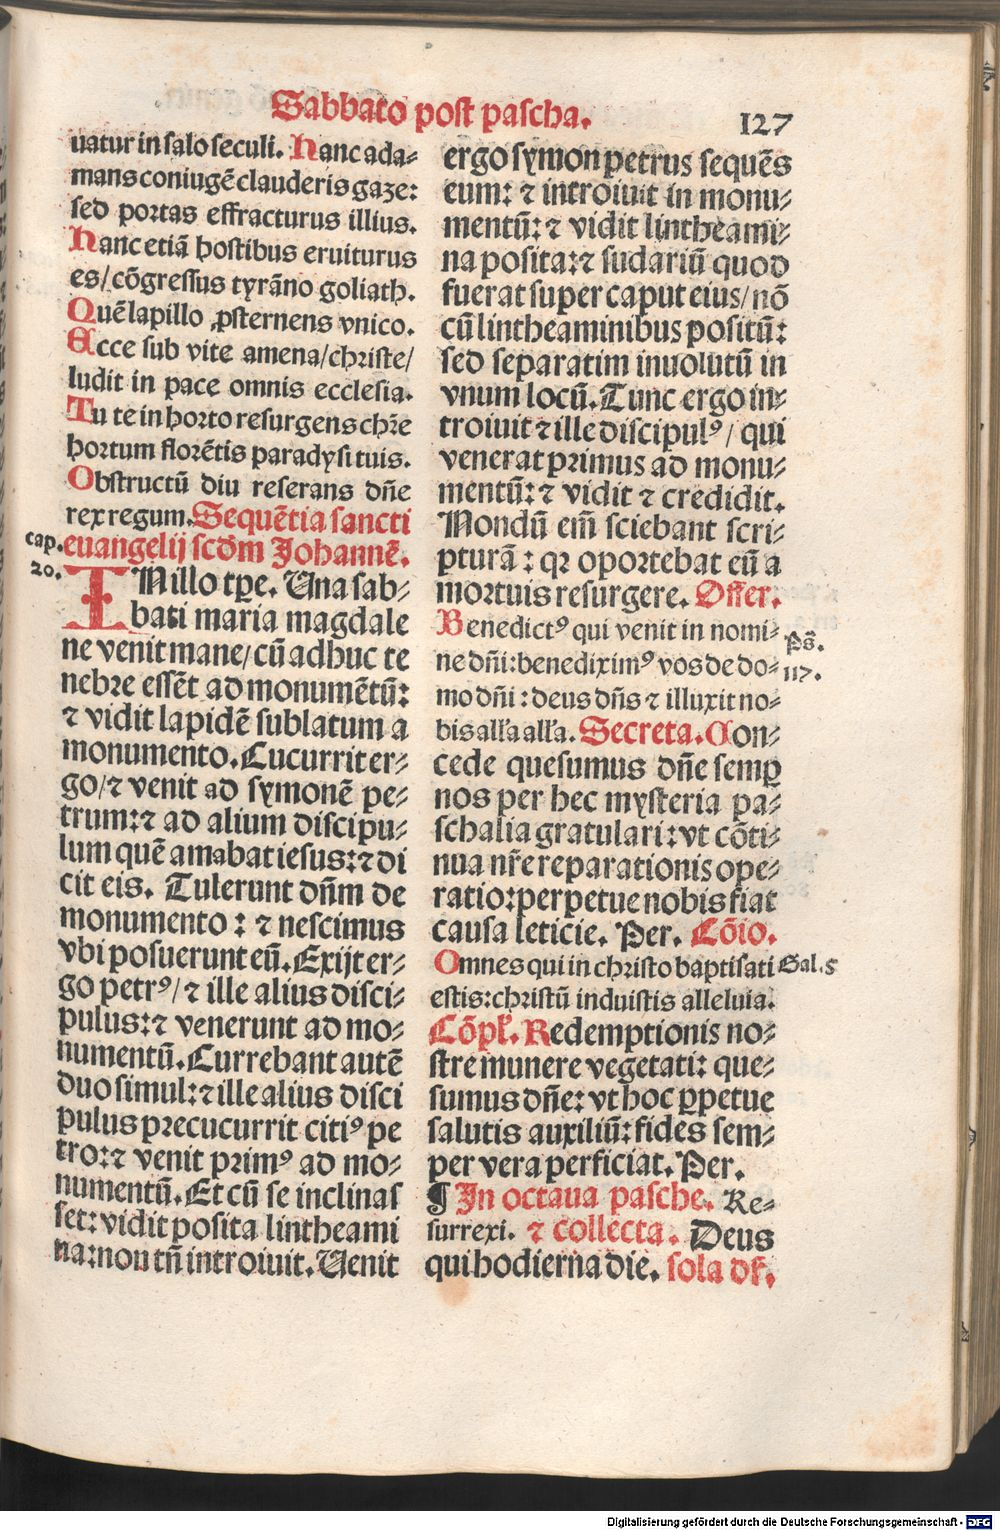 Sabbato post pascha.
127
uatur in salo seculi. Hanc ada⸗
mans coniugē clauderis gaze:
sed portas effracturus illius.
Hanc etiā hostibus eruiturus
es/cōgressus tyrāno goliath.
Quē lapillo ꝓsternens vnico.
Ecce sub vite amena/christe/
ludit in pace omnis ecclesia.
Tu te in horto resurgens chr̄e
hortum florētis paradysi tuis.
Obstructū diu reserans dn̄e
rex regum. Sequētia sancti
cap. euangelij scd̄m Johannē.
20.
IN illo tp̄e. Una sab⸗
bati maria magdale
ne venit mane/cū adhuc te
nebre essēt ad monumētū:
⁊ vidit lapidē sublatum a
monumento. Cucurrit er⸗
go/⁊ venit ad symonē pe⸗
trum:⁊ ad alium discipu⸗
lum quē amabat iesus:⁊ di
cit eis. Tulerunt dn̄m de
monumento : ⁊ nescimus
vbi posuerunt eū. Exijt er⸗
go petrꝰ/⁊ ille alius disci⸗
pulus:⁊ venerunt ad mo⸗
numentū. Currebant autē
duo simul:⁊ ille alius disci
pulus precucurrit citiꝰ pe
tro:⁊ venit primꝰ ad mo⸗
numentū. Et cū se inclinas
set: vidit posita lintheami
na:non tn̄ introiuit. Uenit
ergo symon petrus sequēs
eum: ⁊ introiuit in monu⸗
mentū: ⁊ vidit lintheami⸗
na posita:⁊ sudariū quod
fuerat super caput eius/nō
cū lintheaminibus positū:
sed separatim inuolutū in
vnum locū. Tunc ergo in⸗
troiuit ⁊ ille discipulꝰ/ qui
venerat primus ad monu⸗
mentū: ⁊ vidit ⁊ credidit.
Nondū em̄ sciebant scri⸗
pturā : qꝛ oportebat eū a
mortuis resurgere. Offer.
Benedictꝰ qui venit in nomi⸗ Ps̄.
ne dn̄i:benediximꝰ vos de do⸗ 117.
mo dn̄i : deus dn̄s ⁊ illuxit no⸗
bis all'a all'a. Secreta. Con⸗
cede quesumus dn̄e semꝑ
nos per hec mysteria pa⸗
schalia gratulari: vt cōti⸗
nua nr̄e reparationis ope⸗
ratio:perpetue nobis fiat
causa leticie. Per. Cōio.
Omnes qui in christo baptisati Gal.5
estis:christū induistis alleluia.
Cōpl'. Redemptionis no⸗
stre munere vegetati: que⸗
sumus dn̄e: vt hoc ꝑpetue
salutis auxiliū: fides sem⸗
per vera perficiat. Per.
¶ In octaua pasche. Re⸗
surrexi. ⁊ collecta. Deus
qui hodierna die. sola df.
Digitalisierung gefördert durch die Deutsche Forschungsgemeinschaft - DFG